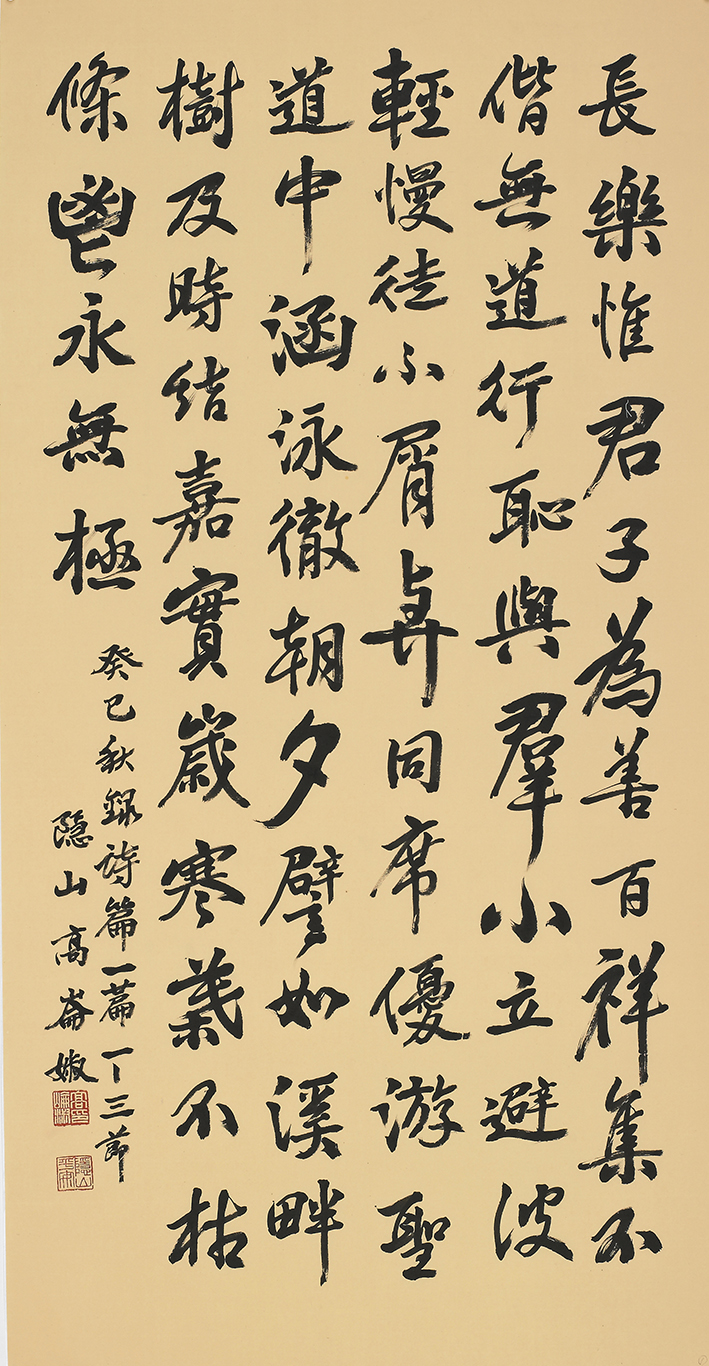 長樂惟君子為善百祥集不
偕無道行恥與羣小立避彼
輕慢徒不屑與同席優游聖
道中涵泳徹朝夕譬如溪畔
樹及時結嘉實歲寒葉不枯
條鬯永無極
癸巳秋錄詩篇一篇一三節
隱山高崙